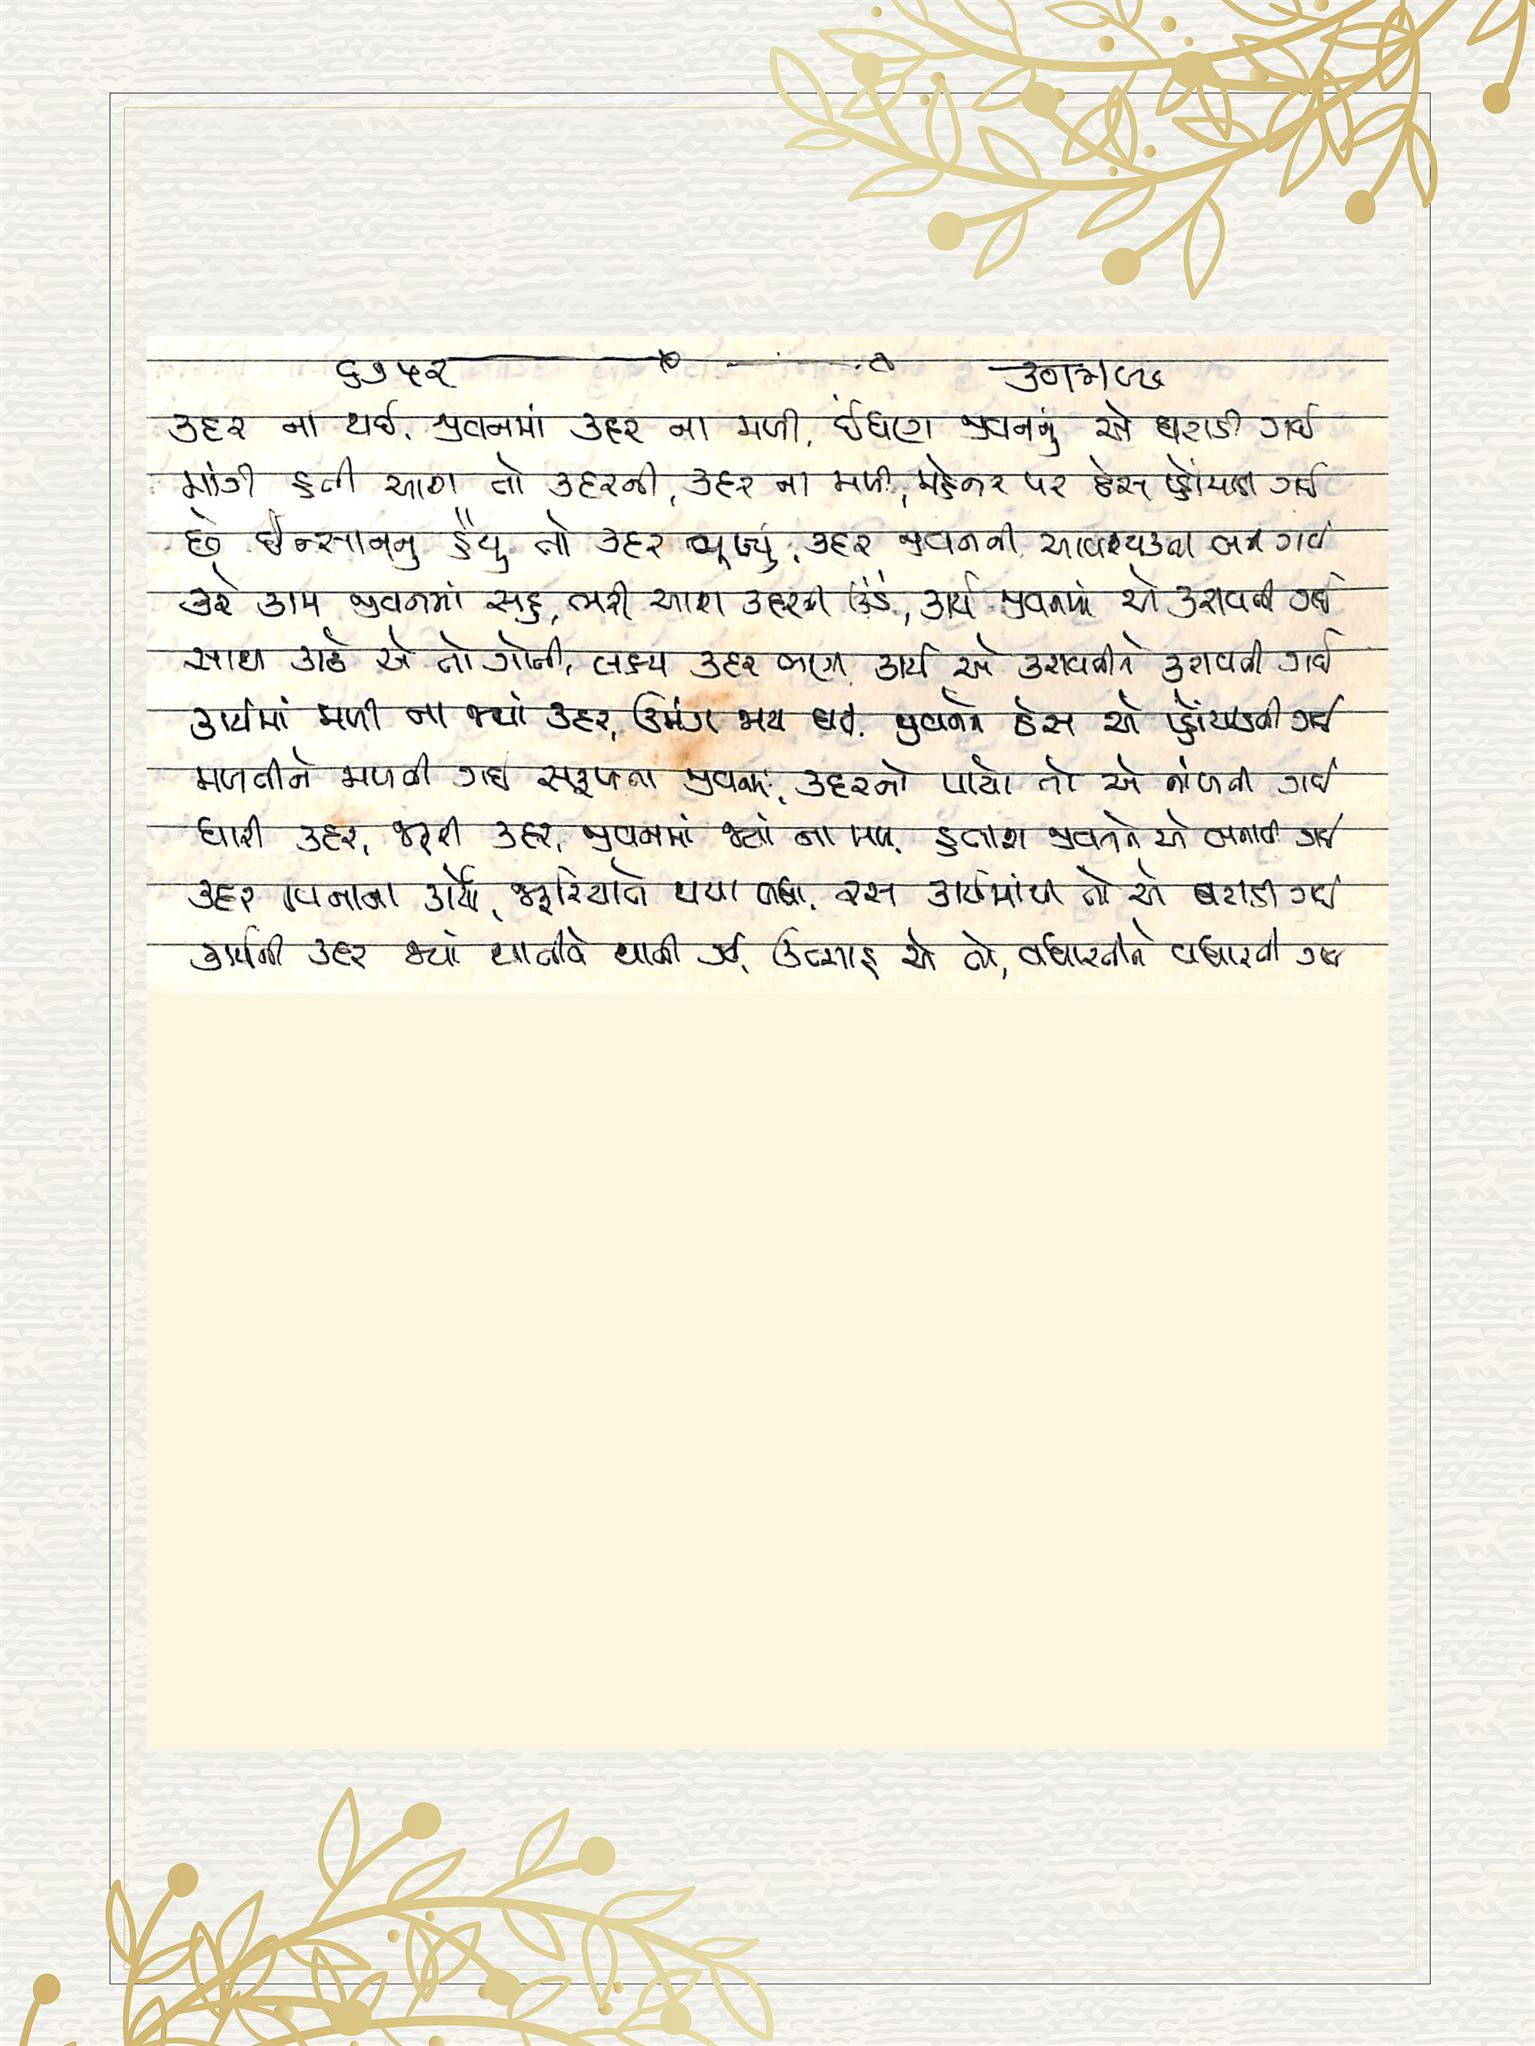 ૬૭૫૨
કદર ના થઈ, જીવનમાં કદર ના મળી, ઈંધણ જીવનનું એ ઘટાડી ગઈ
માંગી હતી આશ તો કદરની, કદર ના મળી, મહેનત પર ઠેસ પ્હોંચાડી ગઈ
છે ઇન્સાનનુ હૈયુ તો કદર ભૂખ્યું, કદર જીવનની આવશ્યકતા બની ગઈ
કરે કામ જીવનમાં સહુ, ભરી આશ કદરની ઊંડે, કાર્ય જીવનમાં એ કરાવતી ગઈ
સાથ કાઢે એ તો ગોતી, લક્ષ્ય કદર બણી કાર્ય એ કરાવતીને કરાવતી ગઈ
કાર્યમાં મળી ના જ્યાં કદર, ઉમંગ ભર્યા જીવનને ઠેસ એ પ્હોંચાડતી ગઈ
મળતીને મળતી ગઈ સફળતા જીવનમાં, કદરનો પાયો તો એ નાંખતી ગઈ
ધારી કદર, જરૂરી કદર, જીવનમાં જ્યાં ના મળી હતાશ જીવનને એ બનાવી ગઈ
કદર વિનાના કાર્યો, જરૂરિયાતે થયા બધા, રસ કાર્યમાંથી તો એ ઘટાડી ગઈ
કાર્યની કદર જ્યાં થાતીને થાતી ગઈ, ઉત્સાહ એ તો, વધારતીને વધારતી ગઈ